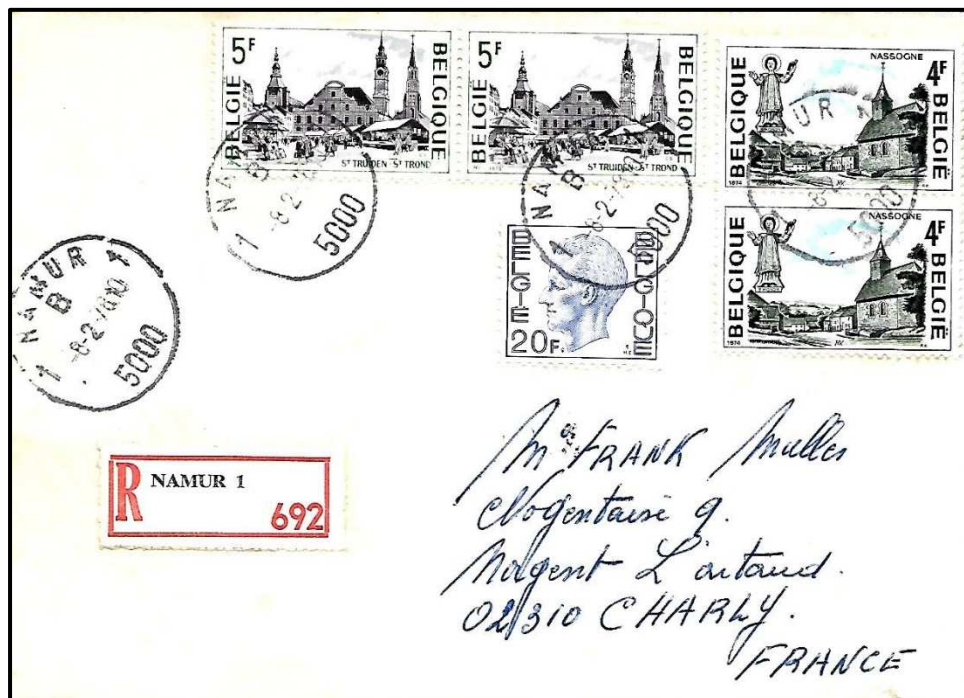 5F BELGIE BELGIQUE
ST TRUIDEN - ST TROND
5F BELGIE BELGIQUE
ST TRUIDEN - ST TROND
NASSOGNE
BELGIQUE 4F BELGIË
1974
NASSOGNE
BELGIQUE 4F BELGIË
1974
BELGIE BELGIQUE
20F.
1 NAMUR 1
B
-8-2-
5000
1 NAMUR 1
B
-8-2-
5000
NAMUR
-8-2-
5000
1 NAMUR 1
B
-8-2-78 10
5000
R NAMUR 1
692
Mr FRANK Mulles
Nogentaise 9.
Nogent L'artaud.
02310 CHARLY.
FRANCE